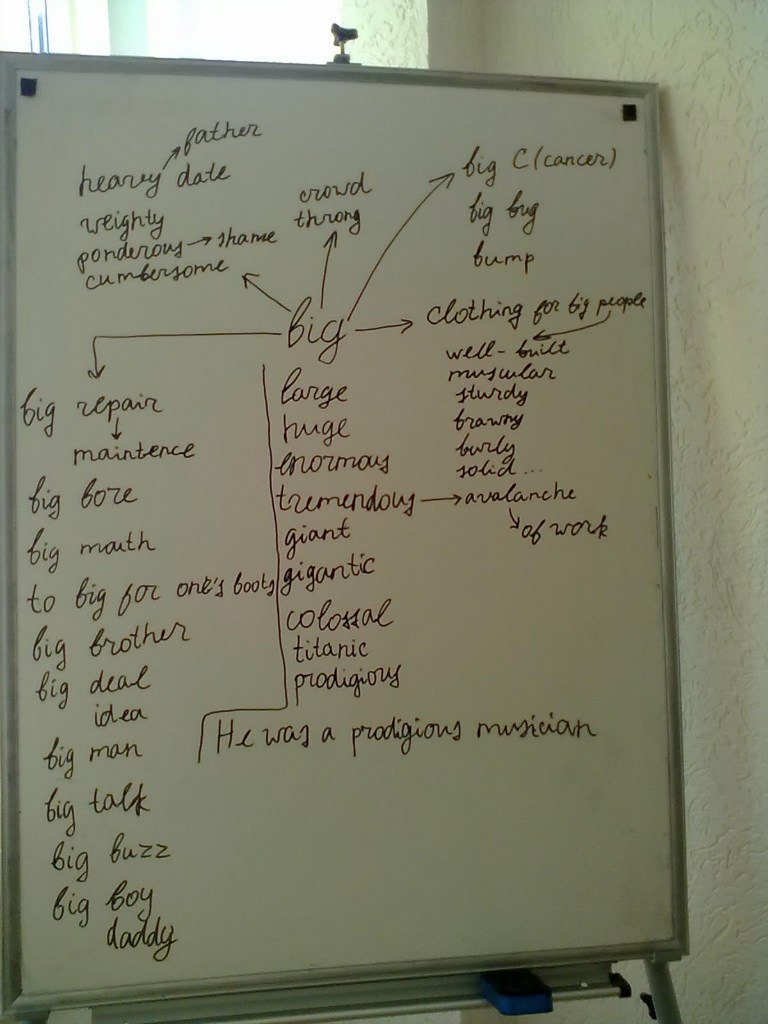 father
heavy date
weighty
ponderous → shame
cumbersome
crowd
throng
big C (cancer)
big bug
bump
big
clothing for big people
well-built
muscular
sturdy
brawny
burly
solid ...
large
huge
enormous
tremendous → avalanche
of work
giant
gigantic
colossal
titanic
prodigious
He was a prodigious musician
big repair
maintence
big bore
big mouth
to big for one's boots
big brother
big deal
idea
big man
big talk
big buzz
big boy
daddy